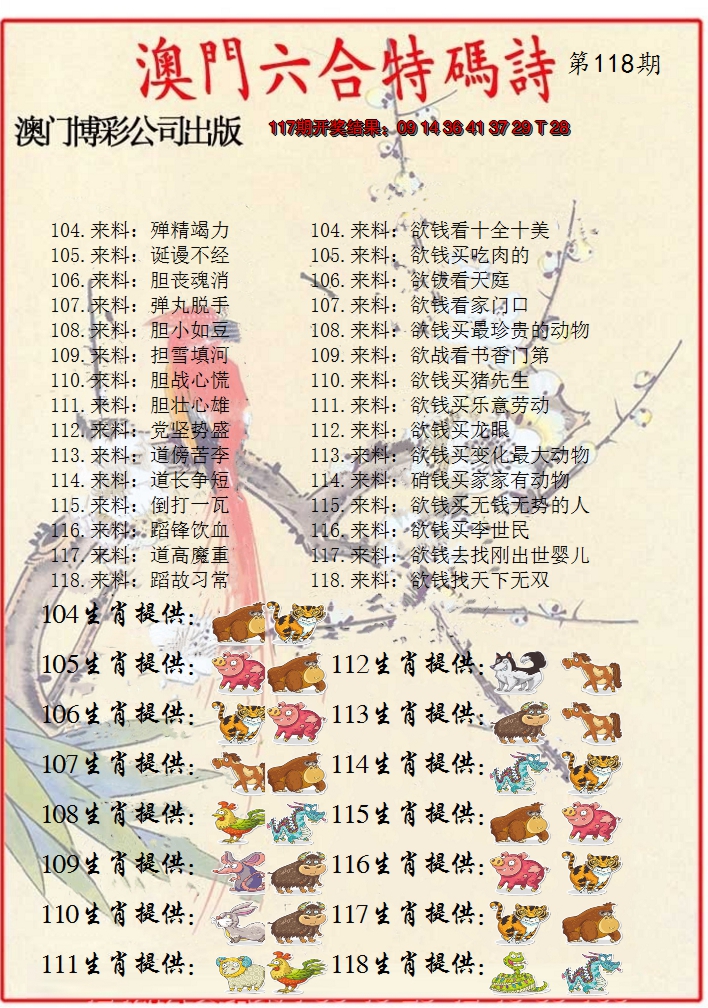 澳門六合特碼詩 第118期
澳门博彩公司出版 117期开奖结果：09 14 36 41 37 29 T 28
104.来料：殚精竭力 104.来料：欲钱看十全十美
105.来料：诞谩不经 105.来料：欲钱买吃肉的
106.来料：胆丧魂消 106.来料：欲钱看天庭
107.来料：弹丸脱手 107.来料：欲钱看家门口
108.来料：胆小如豆 108.来料：欲钱买最珍贵的动物
109.来料：担雪填河 109.来料：欲战看书香门第
110.来料：胆战心慌 110.来料：欲钱买猪先生
111.来料：胆壮心雄 111.来料：欲钱买乐意劳动
112.来料：党坚势盛 112.来料：欲钱买龙眼
113.来料：道傍苦李 113.来料：欲钱买变化最大动物
114.来料：道长争短 114.来料：硝钱买家家有动物
115.来料：倒打一瓦 115.来料：欲钱买无钱无势的人
116.来料：蹈锋饮血 116.来料：欲钱买李世民
117.来料：道高魔重 117.来料：欲钱去找刚出世婴儿
118.来料：蹈故习常 118.来料：欲钱找天下无双
104生肖提供：
105生肖提供： 112生肖提供：
106生肖提供： 113生肖提供：
107生肖提供： 114生肖提供：
108生肖提供： 115生肖提供：
109生肖提供： 116生肖提供：
110生肖提供： 117生肖提供：
111生肖提供： 118生肖提供：